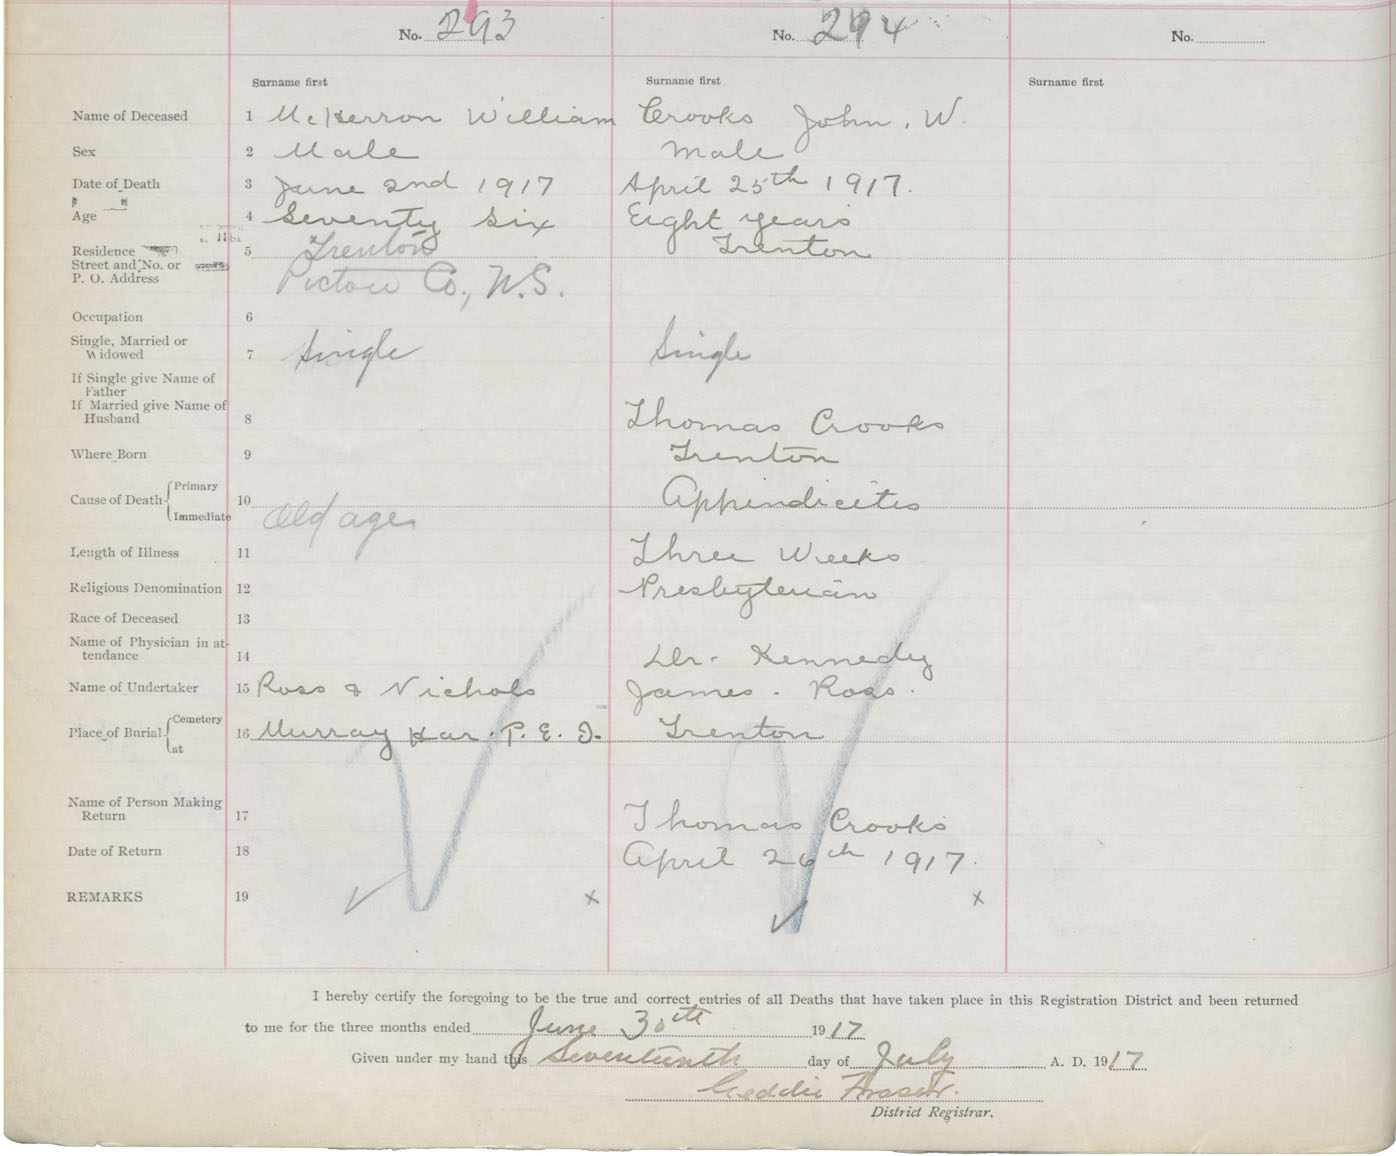 No. 293 No. 294 No.
Surname first Surname first Surname first
Name of Deceased 1 McKerron William Crooks John. W.
Sex 2 Male Male
Date of Death 3 June 2nd 1917 April 25th 1917.
Age 4 Seventy Six Eight years
Residence 5 Trenton Trenton
Street and No. or
P. O. Address Pictou Co., N.S.
Occupation 6
Single, Married or
Widowed 7 Single Single
If Single give Name of
Father
If Married give Name of
Husband 8 Thomas Crooks
Where Born 9 Trenton
Cause of Death { Primary 10 Appindicites
Immediate Old age
Length of Illness 11 Three Weeks
Religious Denomination 12 Presbyterian
Race of Deceased 13
Name of Physician in at-
tendance 14 Dr. Kennedy
Name of Undertaker 15 Ross & Nichols James. Ross.
Place of Burial { Cemetery 16 Murray Har. P. E. I. Trenton
at
Name of Person Making
Return 17 Thomas Crooks
Date of Return 18 April 26th 1917.
REMARKS 19 x x
I hereby certify the foregoing to be the true and correct entries of all Deaths that have taken place in this Registration District and been returned
to me for the three months ended June 30th 1917
Given under my hand this Seventeenth day of July A. D. 1917
Geddie Fraser.
District Registrar.